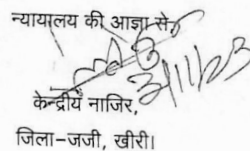 न्यायालय की आज्ञा से,
केन्द्रीय नाजिर,
जिला-जजी, खीरी।